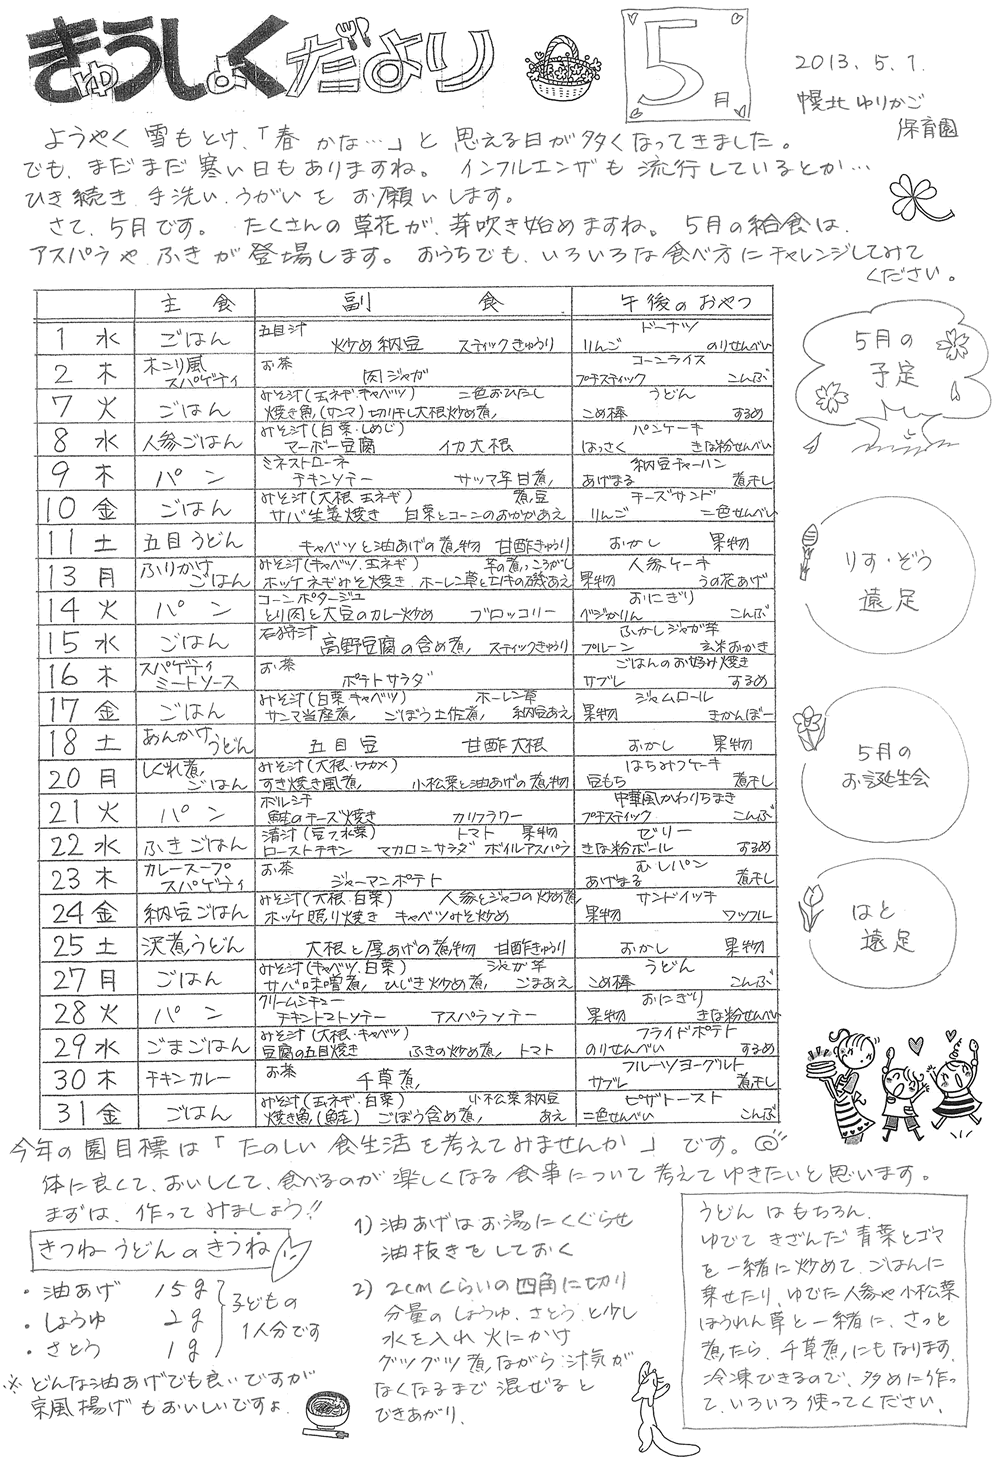 きゅうしょくだより
5月
2013. 5. 1.
幌北ゆりかご
保育園
ようやく 雪もとけ、「春 かな…」と 思える日が多くなってきました。
でも、まだまだ 寒い日もありますね。 インフルエンザも 流行しているとか…
ひき続き、手洗い、うがいを お願いします。
さて、5月です。 たくさんの 草花が、芽吹き始めますね。 5月の給食は、
アスパラや、ふきが 登場します。 おうちでも、いろいろな食べ方にチャレンジしてみて
ください。
主 食 副 食 午後のおやつ
1 水 ごはん 五目汁 炒め納豆 スティックきゅうり ドーナツ りんご のりせんべい
2 木 木こり風スパゲティ お茶 肉ジャガ コーンライス プチスティック こんぶ
7 火 ごはん みそ汁(玉ネギ・キャベツ) 二色おひたし 焼き魚(サンマ) 切り干し大根炒め煮 うどん こめ棒 するめ
8 水 人参ごはん みそ汁(白菜・しめじ) マーボー豆腐 イカ大根 パンケーキ はっさく きな粉せんべい
9 木 パン ミネストローネ チキンソテー サツマ芋甘煮 納豆チャーハン あげまる 煮干し
10 金 ごはん みそ汁(大根 玉ネギ) 煮豆 サバ生姜焼き 白菜とコーンのおかかあえ チーズサンド りんご 二色せんべい
11 土 五目うどん キャベツと油あげの煮物 甘酢きゅうり おかし 果物
13 月 ふりかけごはん みそ汁(キャベツ、玉ネギ) 芋の煮っころがし ホッケネギみそ焼き ホーレン草とエノキの磯あえ 人参ケーキ 果物 うの花あげ
14 火 パン コーンポタージュ とり肉と大豆のカレー炒め ブロッコリー おにぎり ベジかりん こんぶ
15 水 ごはん 石狩汁 高野豆腐の含め煮 スティックきゅうり ふかしジャガ芋 プルーン 玄米おかき
16 木 スパゲティミートソース お茶 ポテトサラダ ごはんのお好み焼き サブレ するめ
17 金 ごはん みそ汁(白菜 キャベツ) ホーレン草 サンマ当座煮 ごぼう土佐煮 納豆あえ ジャムロール 果物 きかんぼー
18 土 あんかけうどん 五目豆 甘酢大根 おかし 果物
20 月 しぐれ煮ごはん みそ汁(大根・ワカメ) すき焼き風煮 小松菜と油あげの煮物 はちみつケーキ 豆もち 煮干し
21 火 パン ボルシチ 鮭のチーズ焼き カリフラワー 中華風かわりちまき プチスティック こんぶ
22 水 ふきごはん 清汁(豆フ 水菜) トマト 果物 ローストチキン マカロニサラダ ボイルアスパラ ゼリー きな粉ボール するめ
23 木 カレースープスパゲティ お茶 ジャーマンポテト むしパン あげまる 煮干し
24 金 納豆ごはん みそ汁(大根・白菜) 人参とジャコの炒め煮 ホッケ照り焼き キャベツみそ炒め サンドイッチ 果物 ワッフル
25 土 沢煮うどん 大根と厚あげの煮物 甘酢きゅうり おかし 果物
27 月 ごはん みそ汁(キャベツ、白菜) ジャガ芋 サバ味噌煮 ひじき炒め煮 ごまあえ うどん こめ棒 こんぶ
28 火 パン クリームシチュー チキントマトソテー アスパラソテー おにぎり 果物 きな粉せんべい
29 水 ごまごはん みそ汁(大根・キャベツ) 豆腐の五目焼き ふきの炒め煮 トマト フライドポテト のりせんべい するめ
30 木 チキンカレー お茶 千草煮 フルーツヨーグルト サブレ 煮干し
31 金 ごはん みそ汁(玉ネギ・白菜) 小松菜納豆あえ 焼き魚(鮭) ごぼう含め煮 ピザトースト 二色せんべい こんぶ
5月の
予定
りす・ぞう
遠足
5月の
お誕生会
はと
遠足
今年の園目標は「たのしい 食生活を考えてみませんか」です。
体に良くて、おいしくて、食べるのが 楽しくなる 食事について 考えてゆきたいと思います。
まずは、作ってみましょう!!
きつねうどんのきつね
・油あげ 15g
・しょうゆ 2g
・さとう 1g
子どもの
1人分です
※どんな油あげでも良いですが
京風揚げもおいしいですよ。
1) 油あげはお湯にくぐらせ
油抜きをしておく
2) 2cmくらいの四角に切り
分量のしょうゆ、さとうと少し
水を入れ 火にかけ
グツグツ煮ながら 汁気が
なくなるまで 混ぜると
できあがり。
うどん はもちろん、
ゆでて きざんだ 青菜とゴマ
を一緒に炒めて、ごはんに
乗せたり、ゆでた人参や小松菜
ほうれん草と一緒に、さっと
煮たら、千草煮にもなります。
冷凍できるので、多めに作っ
て、いろいろ使ってください。